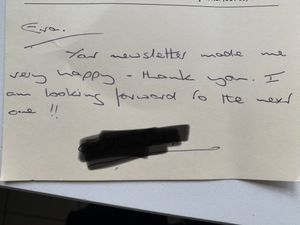 Eva.
Your newsletter made me
very happy - thank you. I
am looking forward to the next
one !!